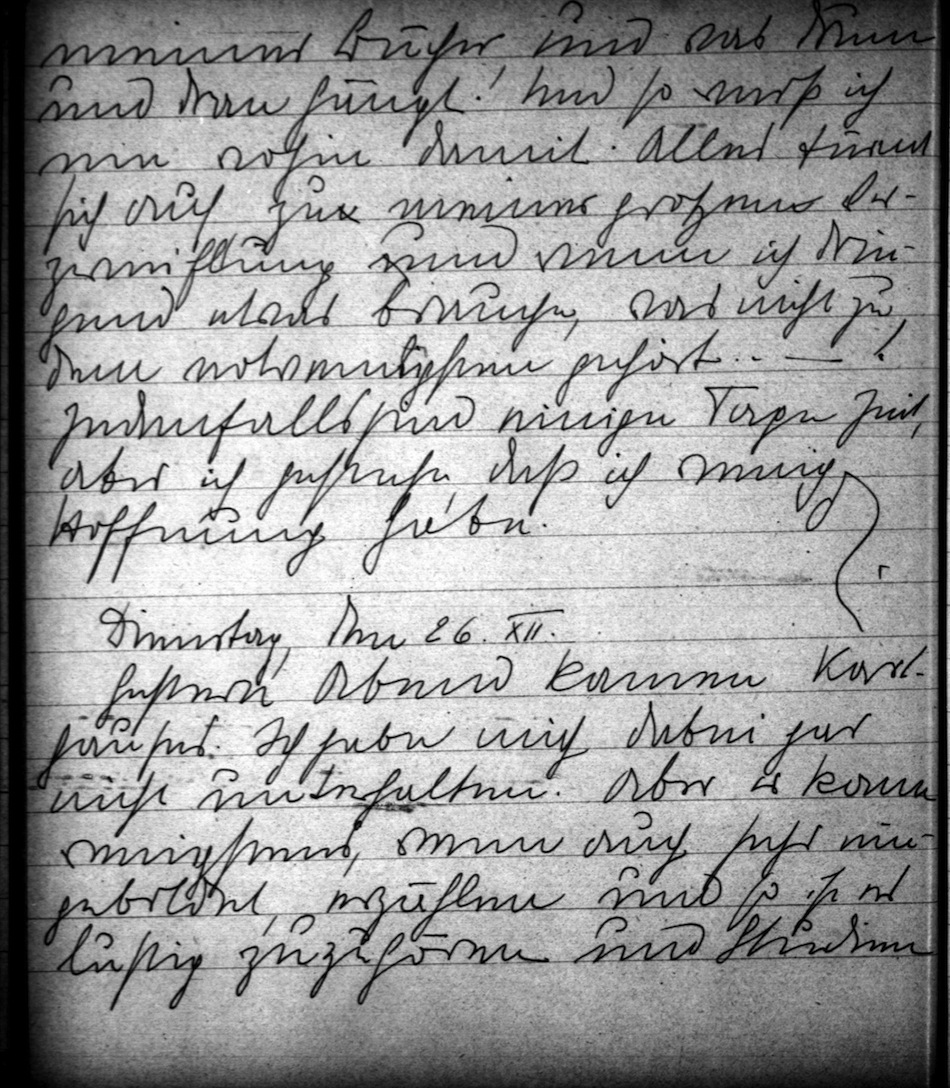 meiner Bücher und was drum
und dran hängt! Und so muß ich
nie wohin damit. Alles türmt
sich auf zur meiner großen Ver-
zweiflung und wenn ich drin-
gend etwas brauche, was nicht zu
dem notwendigsten gehört .. — !
Jedenfalls sind einige Tage Zeit,
aber ich gestehe, daß ich wenig
Hoffnung habe.
Dienstag, den 26. XII.
Gestern Abend kamen Karl-
häuser. Ich habe mich dabei gar
nicht unterhalten. Aber er kann
wenigstens, wenn auch sehr ein-
gebildet, erzählen und so ist es
lustig zuzuhören und Studien